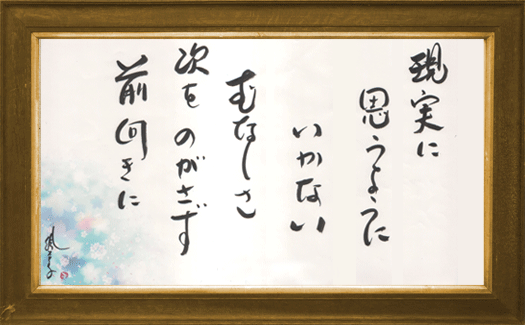 現実に
思うように
いかない
むなしさ
次を のがさず
前向きに